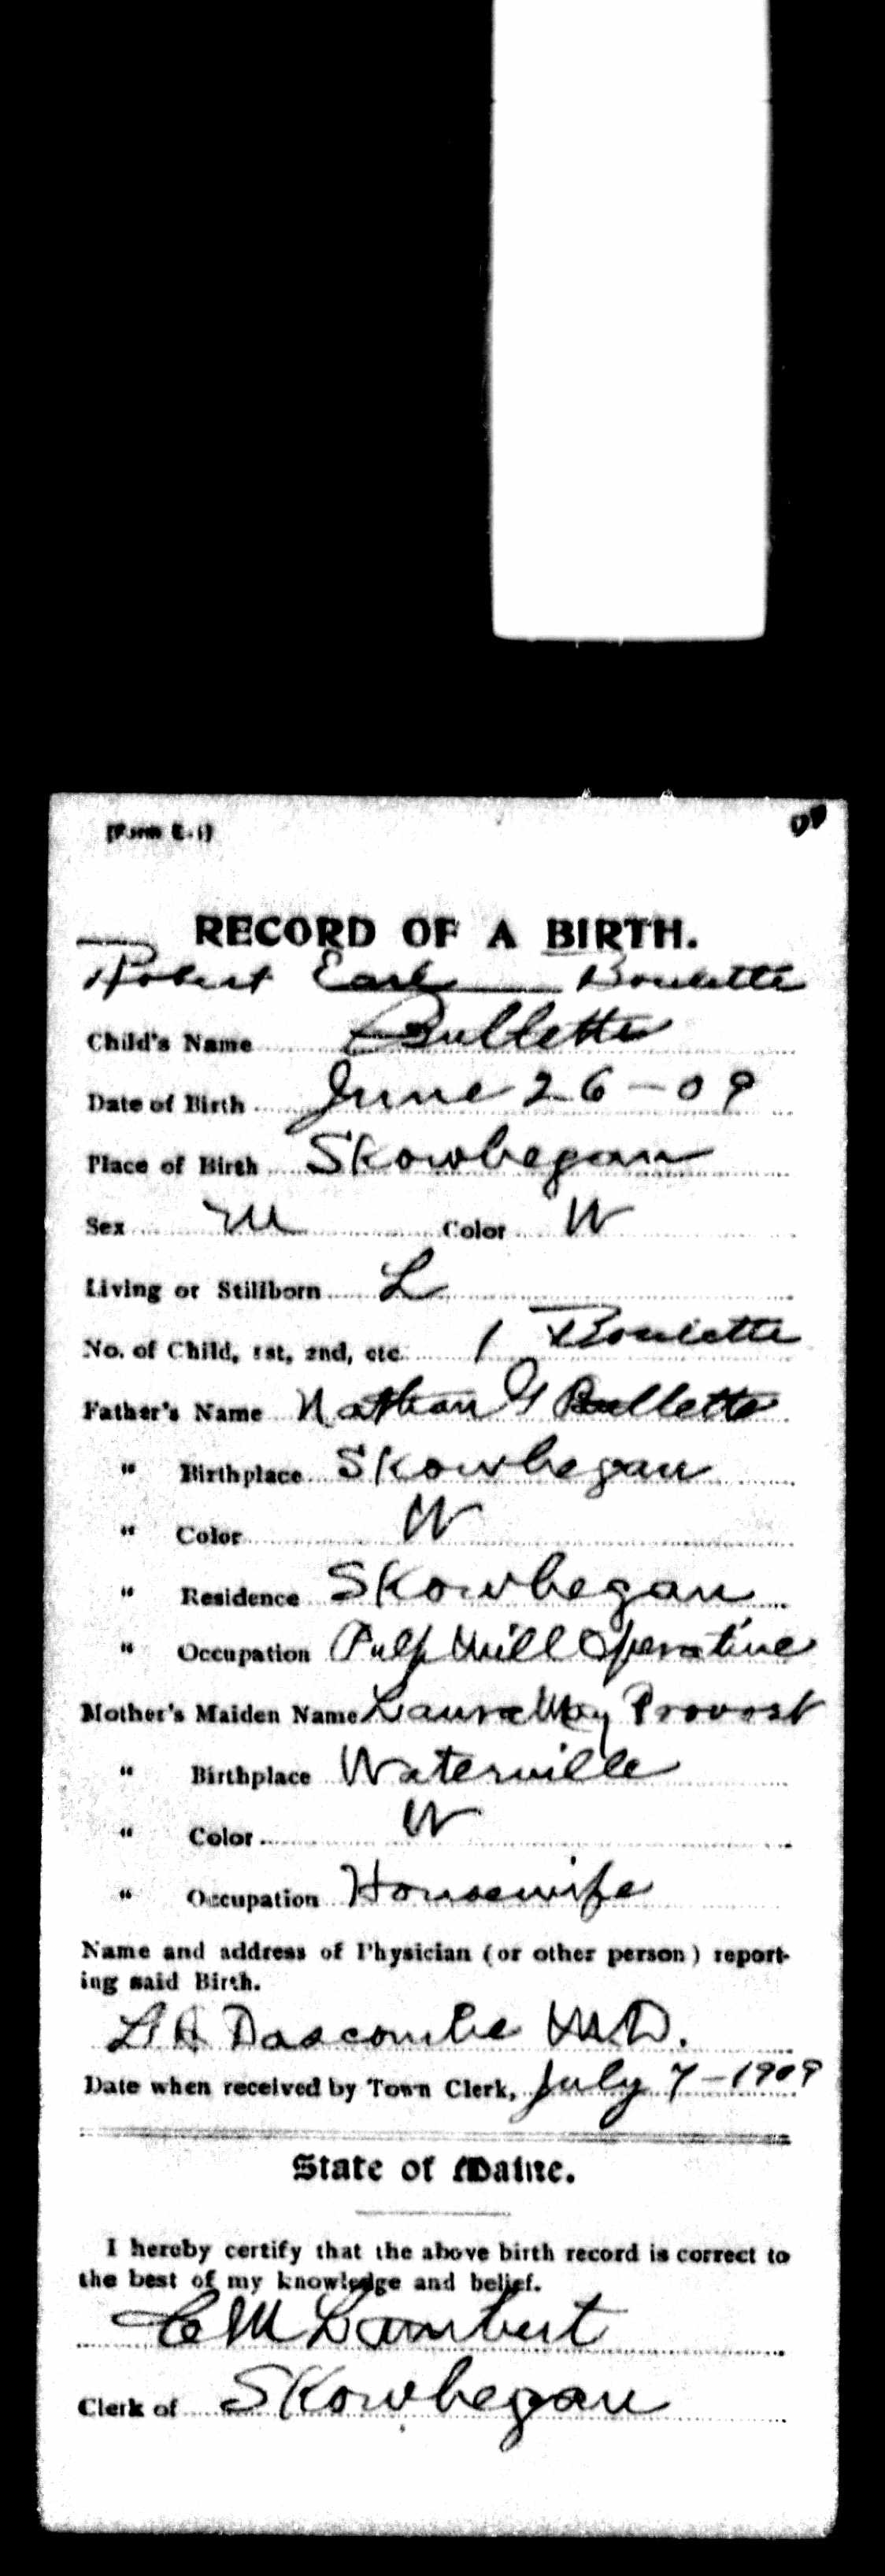 [Form E-1]
RECORD OF A BIRTH.
Robert Earl Boulette
Child's Name Bullette
Date of Birth June 26-09
Place of Birth Skowhegan
Sex M Color W
Living or Stillborn L
Boulette
No. of Child, 1st, 2nd, etc. 1
Father's Name Nathan G Bullette
" Birthplace Skowhegan
" Color W
" Residence Skowhegan
" Occupation Pulp Mill Operative
Mother's Maiden Name Laura May Provost
" Birthplace Waterville
" Color W
" Occupation Housewife
Name and address of Physician (or other person) report-
ing said Birth.
Dascombe M.D.
Date when received by Town Clerk, July 7-1909
State of Maine.
I hereby certify that the above birth record is correct to
the best of my knowledge and belief.
C M Lambert
Clerk of Skowhegan